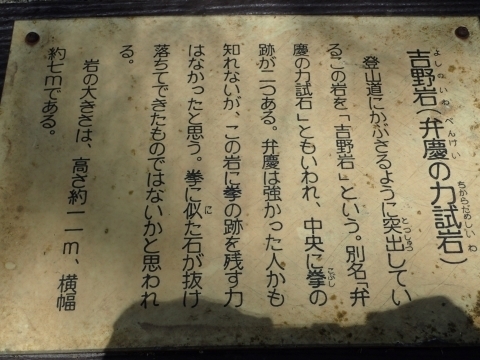 吉野岩(弁慶の力試岩)
よしのいわ べんけい ちからだめしいわ
登山道にかぶさるように突出してい
とっしゅつ
るこの岩を「吉野岩」という。別名「弁
慶の力試石」ともいわれ、中央に拳の
こぶし
跡が二つある。弁慶は強かった人かも
知れないが、この岩に拳の跡を残す力
はなかったと思う。拳に似た石が抜け
に
落ちてできたものではないかと思われ
る。
岩の大きさは、高さ約一一m、横幅
約七mである。